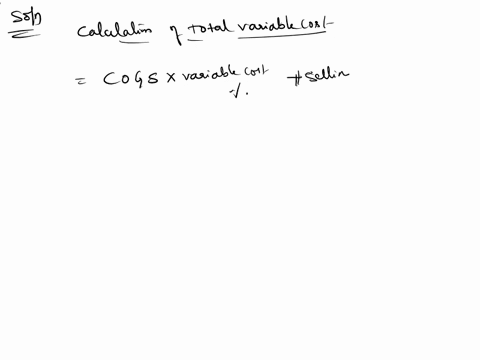 Soln
Calculation of Total variable cost
= COGS x variable cost % + Sellin